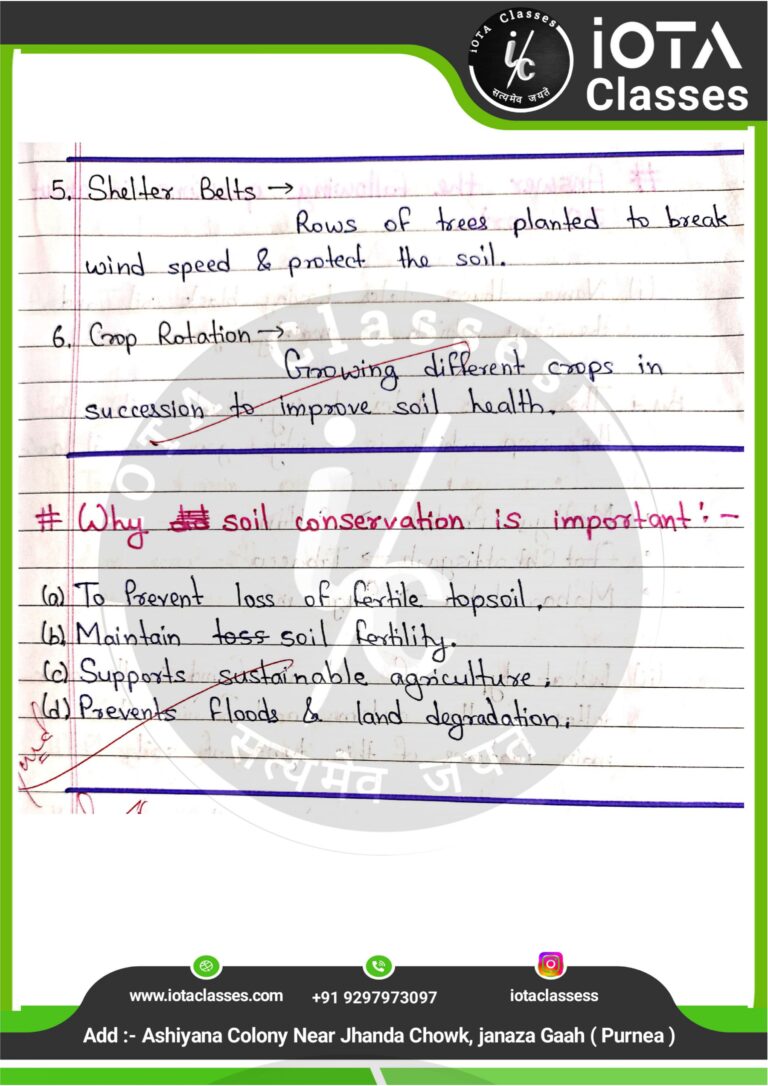 iOTA Classes
i/c
सत्यमेव जयते
iOTA
Classes
5. Shelter Belts →
Rows of trees planted to break
wind speed & protect the soil.
6. Crop Rotation →
Growing different crops in
succession to improve soil health.
# Why soil conservation is important :-
(a) To Prevent loss of fertile topsoil.
(b) Maintain loss soil fertility.
(c) Supports sustainable agriculture.
(d) Prevents floods & land degradation.
iOTA Classes
i/c
सत्यमेव जयते
www.iotaclasses.com
+91 9297973097
iotaclassess
Add :- Ashiyana Colony Near Jhanda Chowk, janaza Gaah ( Purnea )